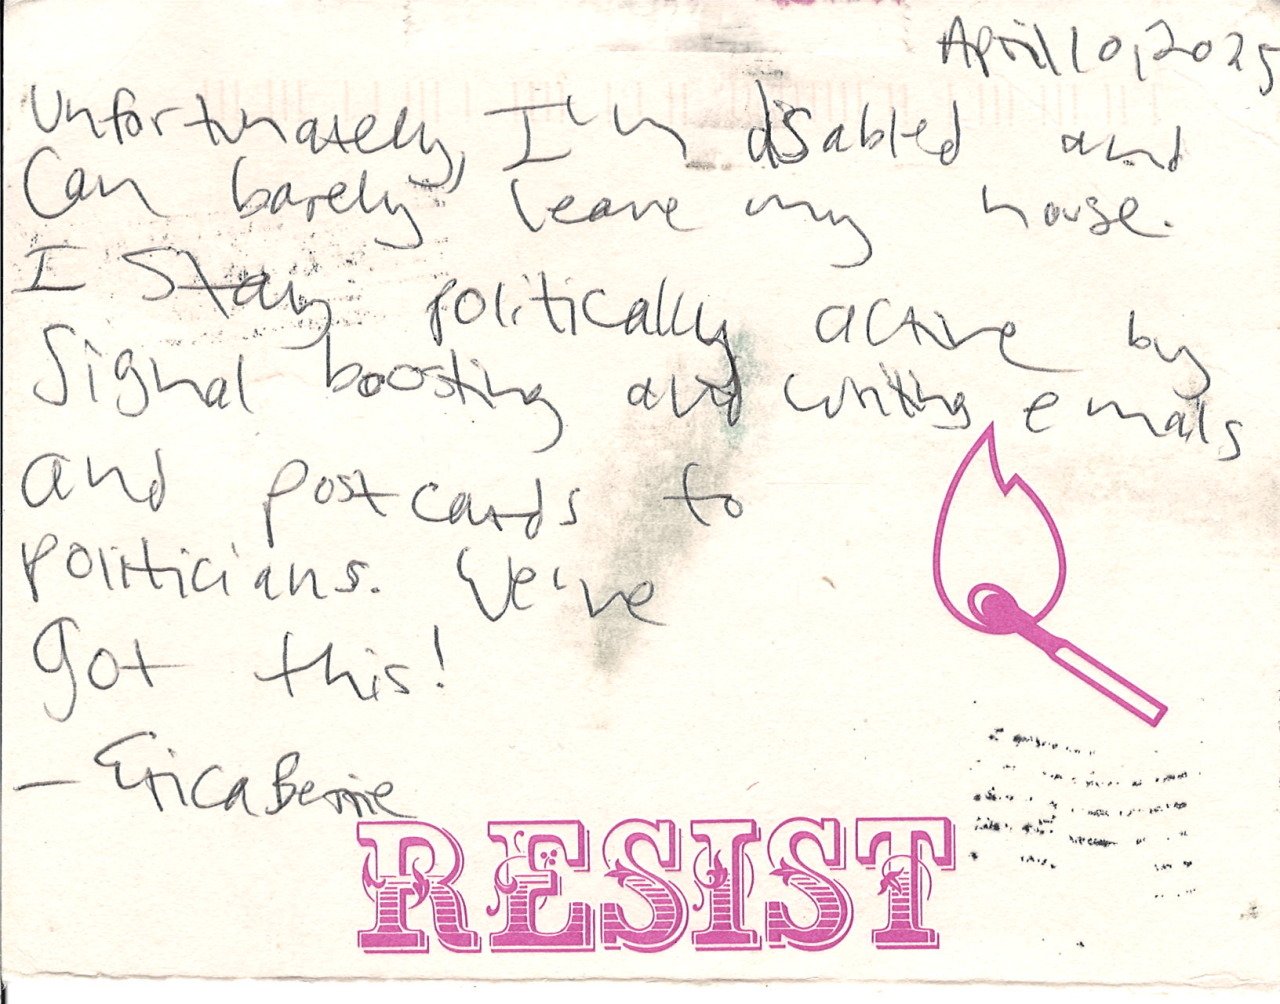 April 10, 2025
Unfortunately, I'm disabled and
Can barely leave my house.
I stay politically active by
Signal boosting and writing emails
and postcards to
politicians. We've
got this!
— Erica Berrie
RESIST